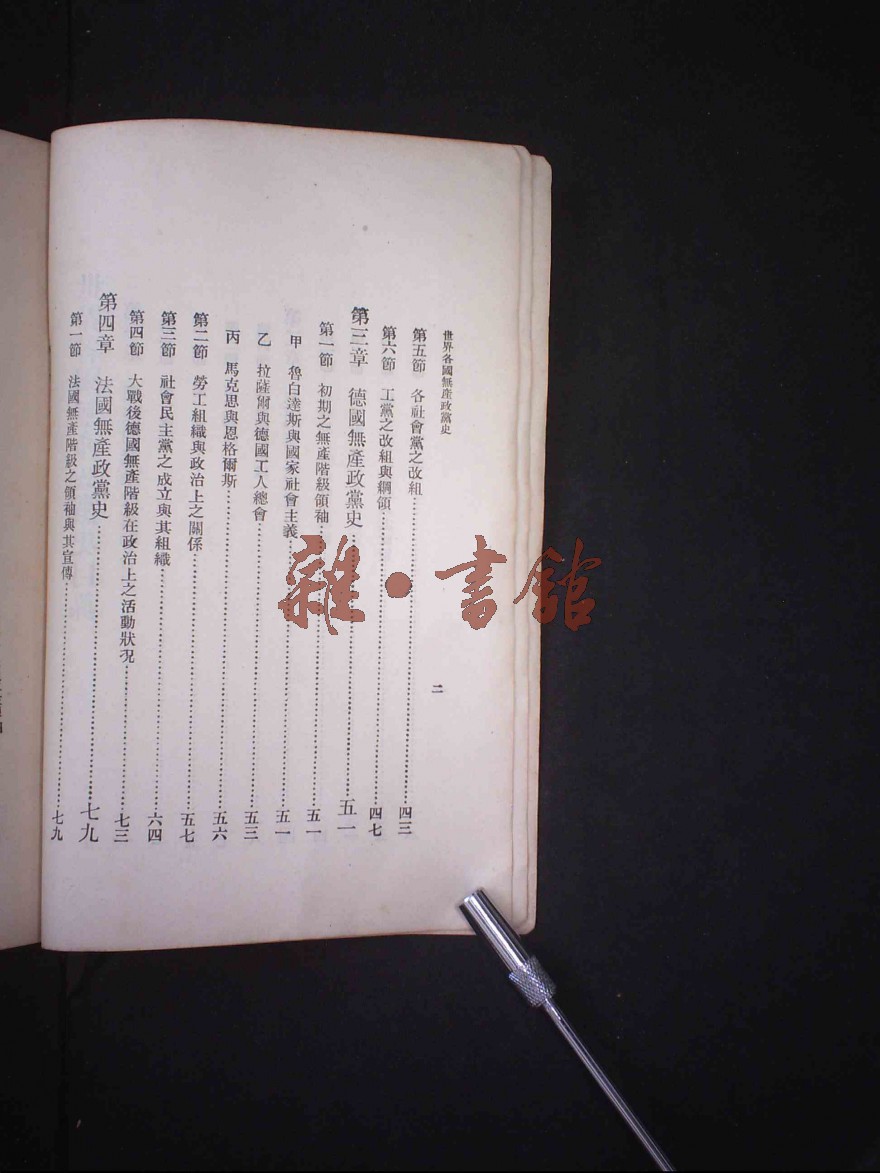 世界各國無產政黨史
二
第五節　各社會黨之改組……四三
第六節　工黨之改組與綱領……四七
第三章　德國無產政黨史……五一
第一節　初期之無產階級領袖……五一
甲　魯白達斯與國家社會主義……五一
乙　拉薩爾與德國工人總會……五三
丙　馬克思與恩格爾斯……五六
第二節　勞工組織與政治上之關係……五七
第三節　社會民主黨之成立與其組織……六四
第四節　大戰後德國無產階級在政治上之活動狀况……七三
第四章　法國無產政黨史……七九
第一節　法國無產階級之領袖與其宣傳……七九
雜·書館